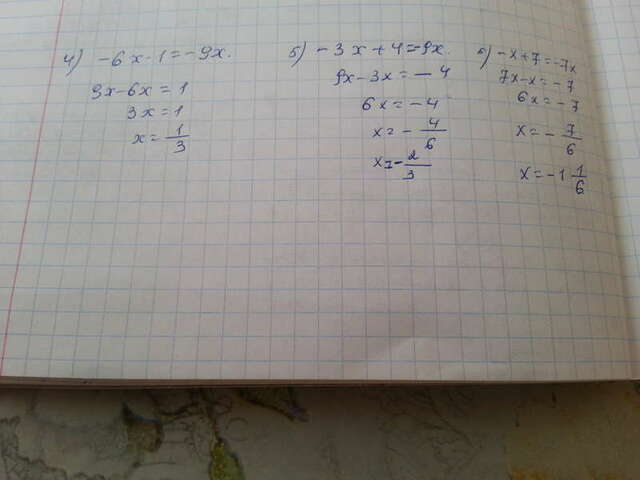 4) -6x-1=-9x.
9x-6x=1
3x=1
x=1/3
5) -3x+4=-9x.
9x-3x=-4
6x=-4
x=-4/6
x=-2/3
6) -x+7=-7x
7x-x=-7
6x=-7
x=-7/6
x=-1 1/6